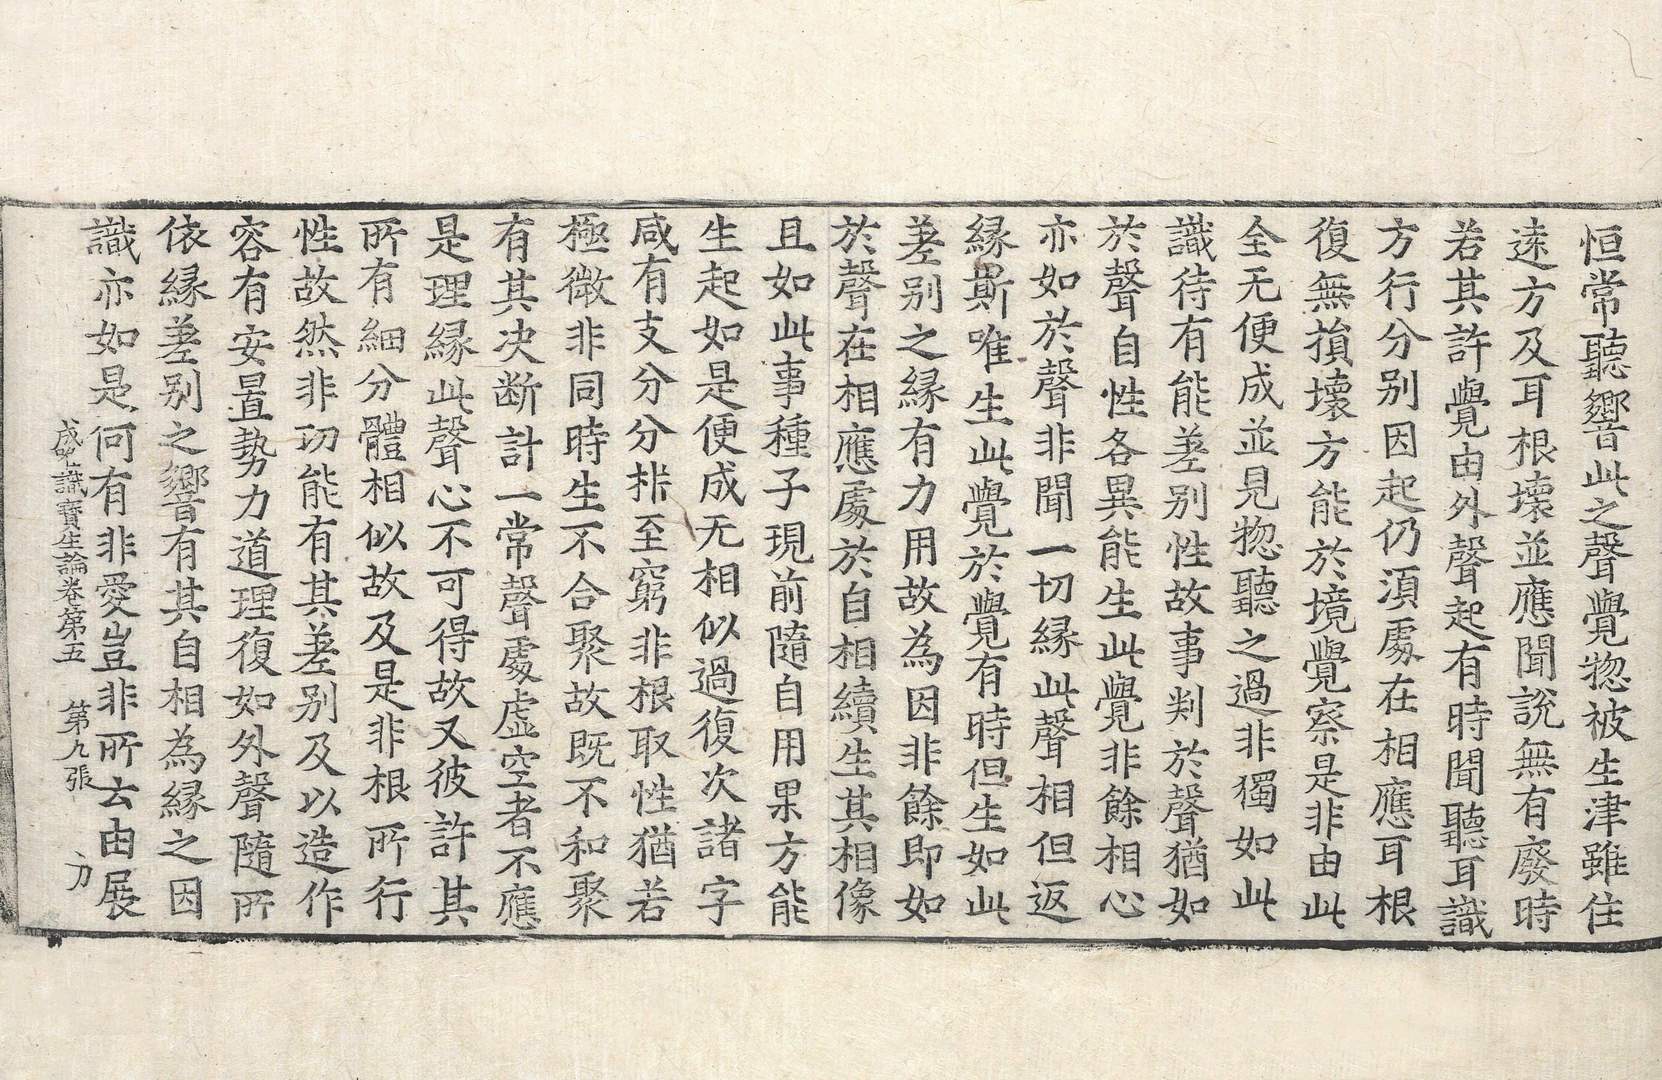 恒常聽響此之聲覺惣被生津雖住
遠方及耳根壞並應聞說無有廢時
若其許覺由外聲起有時聞聽耳識
方行分别因起仍湏處在相應耳根
復無損壞方能於境覺察是非由此
全无便成並見惣聽之過非獨如此
識待有能差别性故事判於聲猶如
於聲自性各異能生此覺非餘相心
亦如於聲非聞一切縁此聲相但返
縁斯唯生此覺於覺有時但生如此
差别之縁有力用故為因非餘即如
於聲在相應處於自相續生其相像
且如此事種子現前隨自用果方能
生起如是便成无相似過復次諸字
咸有支分分析至窮非根取性猶若
極微非同時生不合聚故既不和聚
有其决断計一常聲處虛空者不應
是理縁此聲心不可得故又彼許其
所有細分體相似故及是非根所行
性故然非㓛能有其差别及以造作
容有安置勢力道理復如外聲隨所
依縁差别之響有其自相為縁之因
識亦如是何有非愛豈非所云由展
成唯識寶生論卷第五　第九張　力